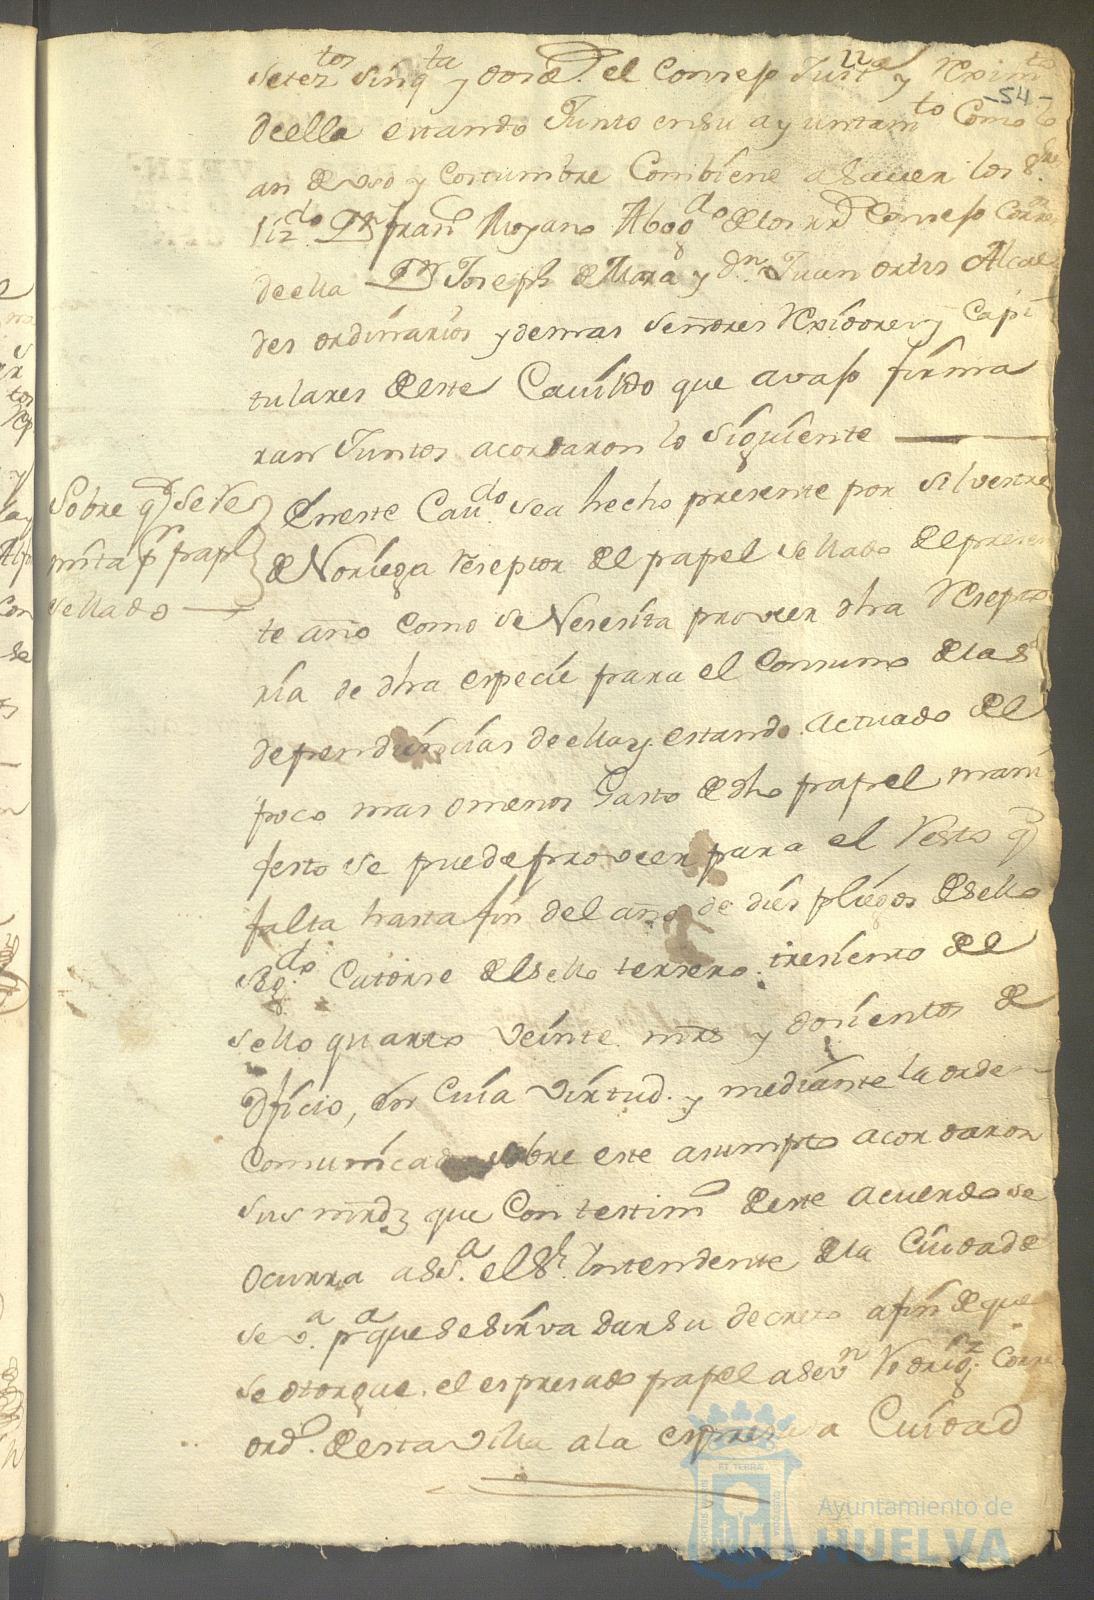 setez.tos sinq.ta y dos @ el Consejo Just.a y Reximto
- 54 -
deella estando Junto ensu ayuntam.to Como lo
an de uso y Costumbre Combiene asauer los S.res
liz.do Dn fran.co Moyano Abog.do delos rrs Consejos Corre
deella Dn Joseph de Mora y dn Juan ortis Alcal
des ordinarios ydemas señores Rexidores y Capi
tulares deeste Cauildo que avajo firma
ran Juntos acordaron lo siguiente
Sobre q se Re
mita p.r papl
sellado
Eneste Cau.do sea hecho presente por silvestre
de Noriega reseptor del papel sellado delpresen
te año como se Nesesita proveer dha Resepto
ria de dha especie para el Consumo delas
dependiencias deella y estando actuado el
poco mas omenos Gasto de dho papel mani
festo se puede proveer para el Resto q
falta hasta fin del año de dies pliegos desello
seg.do Catorse delsello tersero tresiento del
sello quarto veinte mrs y dosientos de
Oficio, En Cuia virtud y mediante la orden
Comunicada sobre este asumpto acordaron
sus mrdz que Con testim.o deeste acuerdo se
Ocurra asS.a elSr Intendente dela Ciudad de
sev.a p.a que sesirva darsu decreto afin de que
se otorgue el espresado papel a sev.n Rodrig.z Corre
ord. deesta villa ala espresada Cuidad
ET TERRA
PORTUS MARIS
CUSTODIA
Ayuntamiento de
HUELVA